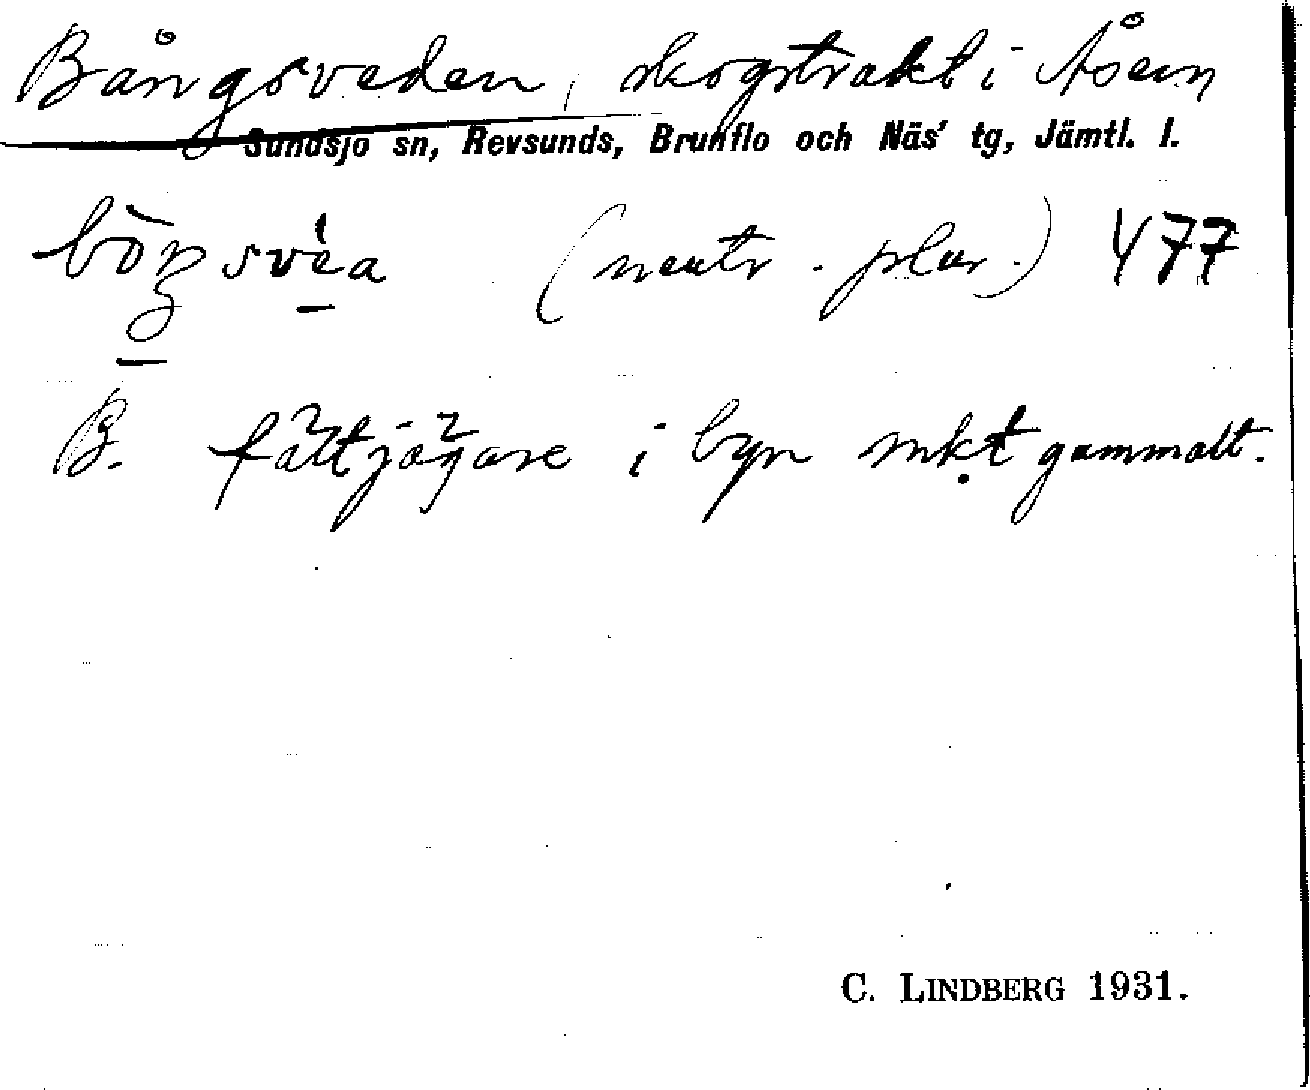 Bångsveden, skogstrakt i Åsen
Sundsjö sn, Revsunds, Brunflo och Näs' tg, Jämtl. l.
(neutr. plur.) 477
B. fältjägare i byn mkt gammalt.
C. LINDBERG 1931.